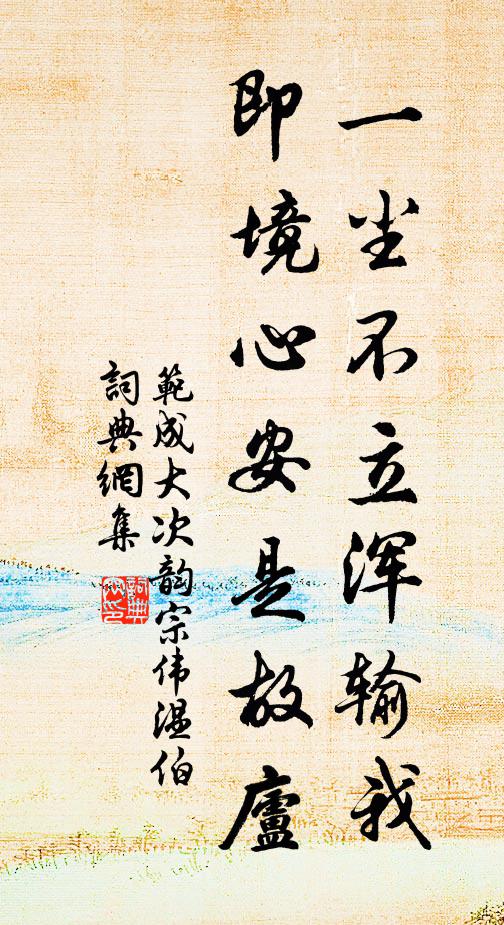 一尘不立浑输我
即境心安是故廬
範成大次韵宗伟温伯
詞典網集